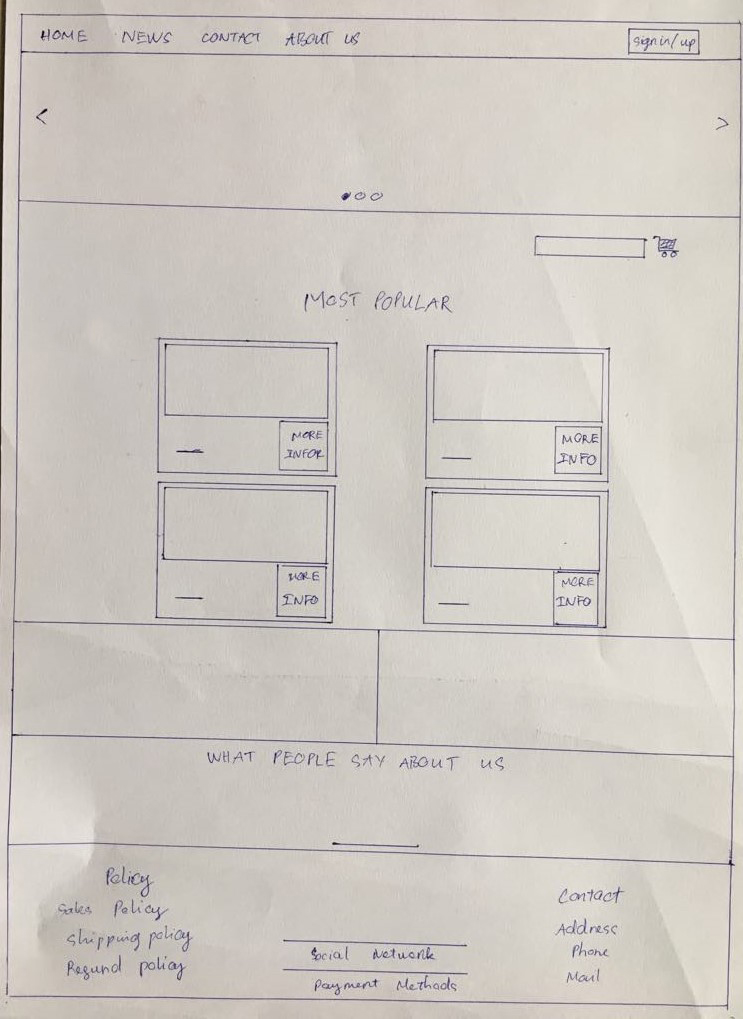 HOME NEWS CONTACT ABOUT US sign in/up
< >
MOST POPULAR
MORE
INFOR
MORE
INFO
MORE
INFO
MORE
INFO
WHAT PEOPLE SAY ABOUT US
Policy
Sales Policy
Shipping policy
Regund policy
Social Network
Payment Methods
Contact
Address
Phone
Mail